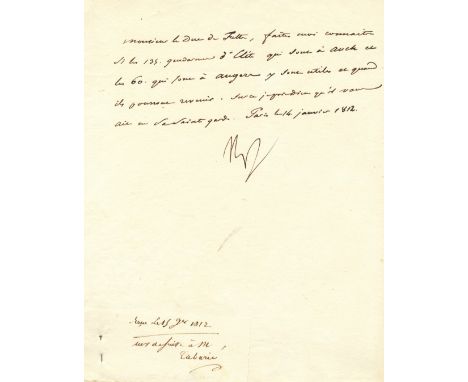 monsieur le Duc de Feltre, faites moi connaitre
si les 135 gendarmes d'Elite qui sont à auch et
les 60. qui sont à angers y sont utiles et quand
ils pourront revenir. Sur ce je prie dieu qu'il vous
ait en Sa Sainte garde. Paris le 14 janvier 1812.
Np
le 15 Jer 1812
à M
Tabarié